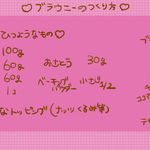 ♡ブラウニーのつくり方♡
ひつようなもの♡
100g
60g おさとう 30g
60g ベーキングパウダー 小さじ1/2
1コ
なトッピング(ナッツ くるみ等)